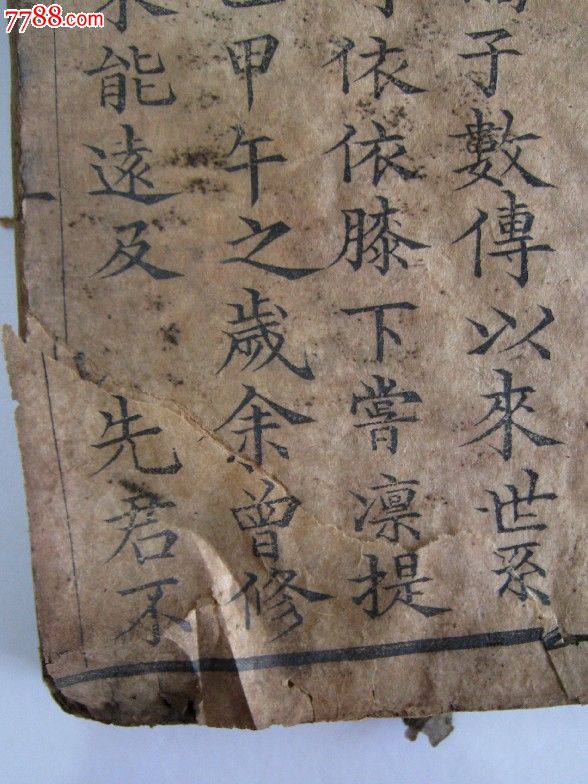 7788.com
子數傳以來世系
依依膝下嘗凛提
甲午之歲余曾修
能遠及 先君不